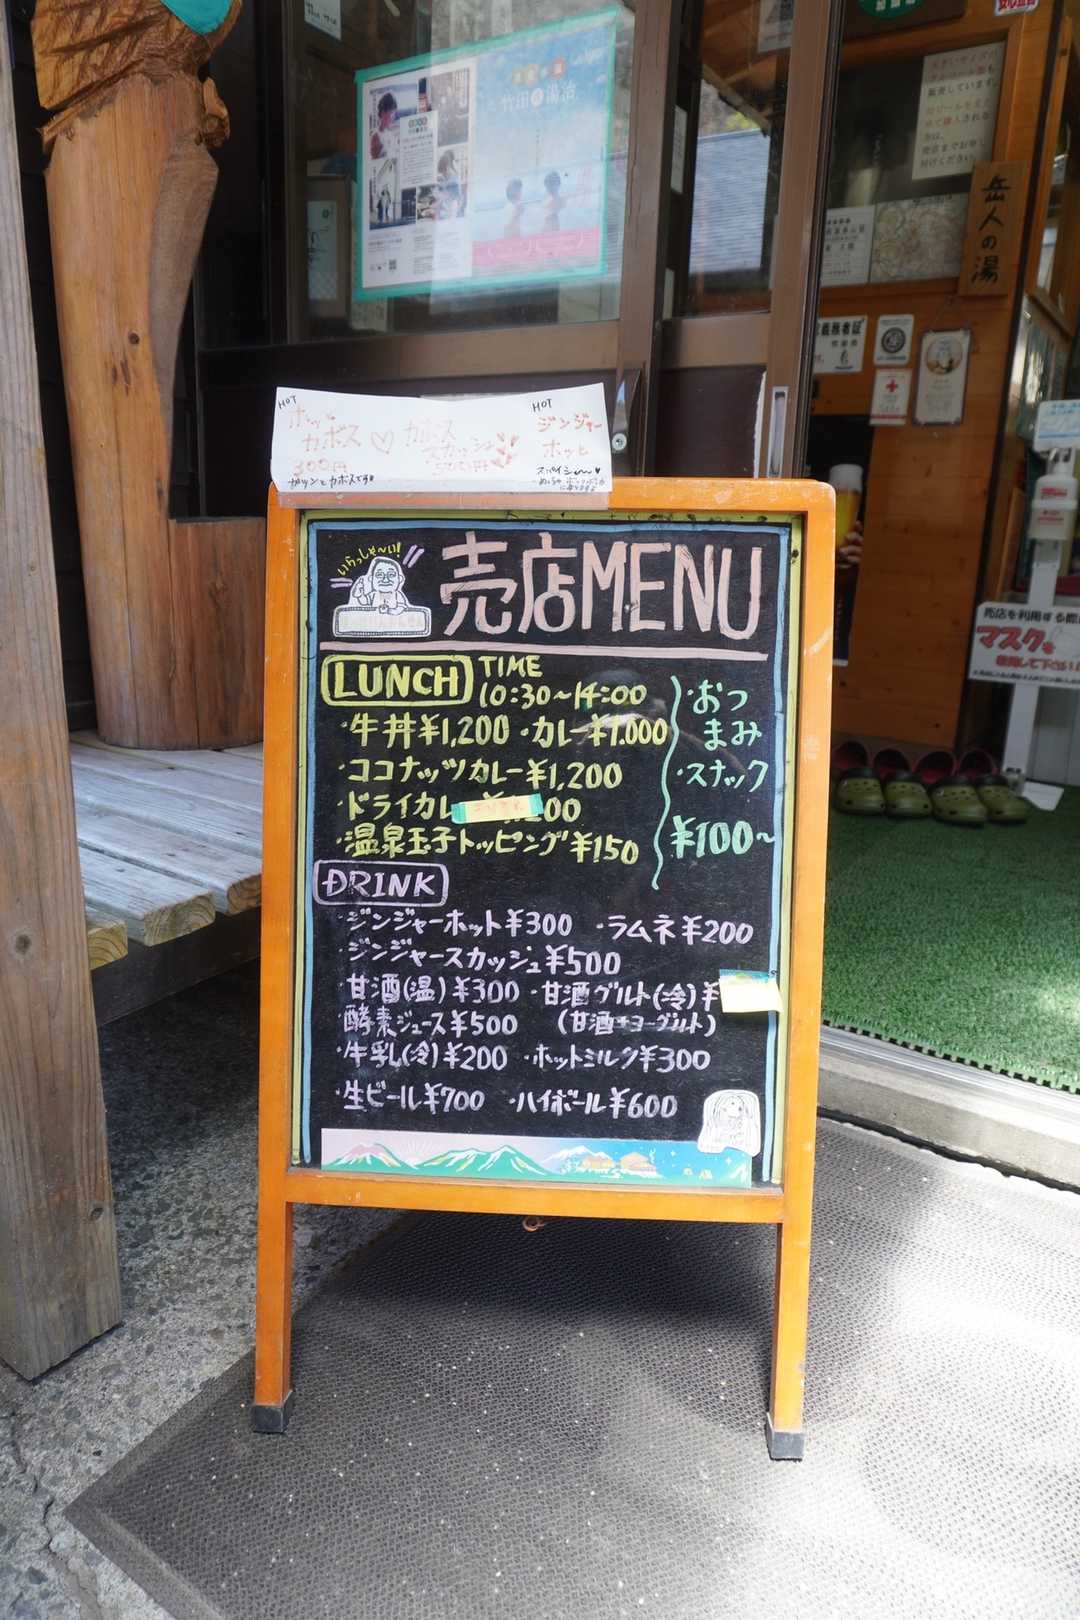 竹田の湯治
販売しています。
岳人の湯
HOT
ホット
カボス
300円
カボス
スカッシュ
500円
HOT
ジンジャー
ホット
いらっしゃ〜い!
売店MENU
LUNCH TIME
10:30〜14:00
・牛丼¥1,200 ・カレー¥1,000
・ココナッツカレー¥1,200
・ドライカレ
・温泉玉子トッピング¥150
・おつ
まみ
・スナック
¥100〜
DRINK
・ジンジャーホット¥300 ・ラムネ¥200
・ジンジャースカッシュ¥500
・甘酒(温)¥300 ・甘酒グルト(冷)¥
・酵素ジュース¥500 (甘酒+ヨーグルト)
・牛乳(冷)¥200 ・ホットミルク¥300
・生ビール¥700 ・ハイボール¥600
売店を利用する際は
マスクを